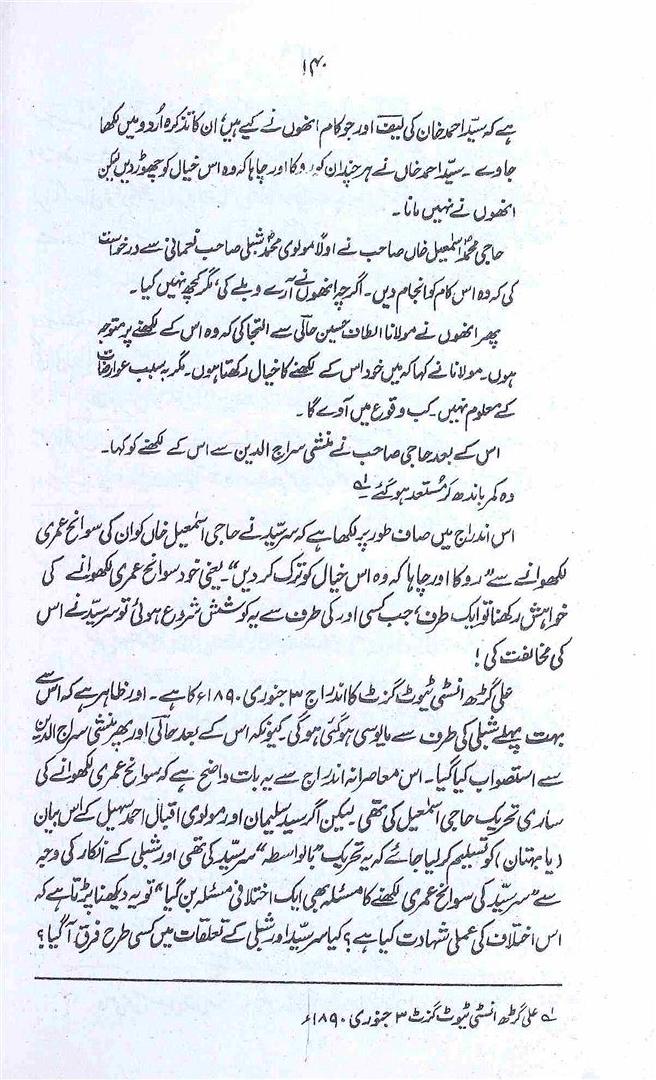 ۱۴۰
ہے کہ سیّد احمد خان کی لیف اور جو کام انھوں نے کیے ہیں، ان کا تذکرہ اُردو میں لکھا
جاوے ۔ سیّد احمد خاں نے ہر چندان کو روکا اور چاہا کہ وہ اس خیال کو چھوڑ دیں لیکن
انھوں نے نہیں مانا ۔
حاجی محمدؐ اسمٰعیل خاں صاحب نے اولاً مولوی محمدؐ شبلی صاحب نعمانی سے درخواست
کی کہ وہ اس کام کو انجام دیں ۔ اگرچہ انھوں نے آرے و بلے کی، مگر کچھ نہیں کیا ۔
پھر انھوں نے مولانا الطاف حسین حالی سے التجا کی کہ وہ اس کے لکھنے پر متوجہ
ہوں ۔ مولانا نے کہا کہ میں خود اس کے لکھنے کا خیال رکھتا ہوں ۔ مگر بہ سبب عوارضات
کے معلوم نہیں کب وقوع میں آوے گا ۔
اس کے بعد حاجی صاحب نے منشی سراج الدین سے اس کے لکھنے کو کہا ۔
وہ کمر باندھ کر مُستعد ہو گئے ۔ لہ
اس اندراج میں صاف طور پر لکھا ہے کہ سرسیّد نے حاجی اسمٰعیل خاں کو ان کی سوانح عمری
لکھوانے سے "روکا اور چاہا کہ وہ اس خیال کو ترک کر دیں" ۔ یعنی خود سوانح عمری لکھوانے کی
خواہش رکھنا تو ایک طرف، جب کسی اور کی طرف سے یہ کوشش شروع ہوئی تو سرسیّد نے اس
کی مخالفت کی !
علی گڑھ انسٹی ٹیوٹ گزٹ کا اندراج ۳ جنوری ۱۸۹۰ء کا ہے ۔ اور ظاہر ہے کہ اس سے
بہت پہلے شبلی کی طرف سے مایوسی ہو گئی ہو گی ۔ کیونکہ اس کے بعد حالی اور پھر منشی سراج الدین
سے استصواب کیا گیا ۔ اس معاصرانہ اندراج سے یہ بات واضح ہے کہ سوانح عمری لکھوانے کی
ساری تحریک حاجی اسمٰعیل کی تھی ۔ لیکن اگر سید سلیمان اور مولوی اقبال احمد سہیل کے اس بیان
(یا بہتان) کو تسلیم کر لیا جائے کہ یہ تحریک "بالواسطہ" سرسیّد کی تھی اور شبلی کے انکار کی وجہ
سے "سرسیّد کی سوانح عمری لکھنے کا مسئلہ بھی ایک اختلافی مسئلہ بن گیا" تو یہ دیکھنا پڑتا ہے کہ
اس اختلاف کی عملی شہادت کیا ہے ؟ کیا سرسیّد اور شبلی کے تعلقات میں کسی طرح فرق آ گیا ؟
لہ علی گڑھ انسٹی ٹیوٹ گزٹ ۳ جنوری ۱۸۹۰ء